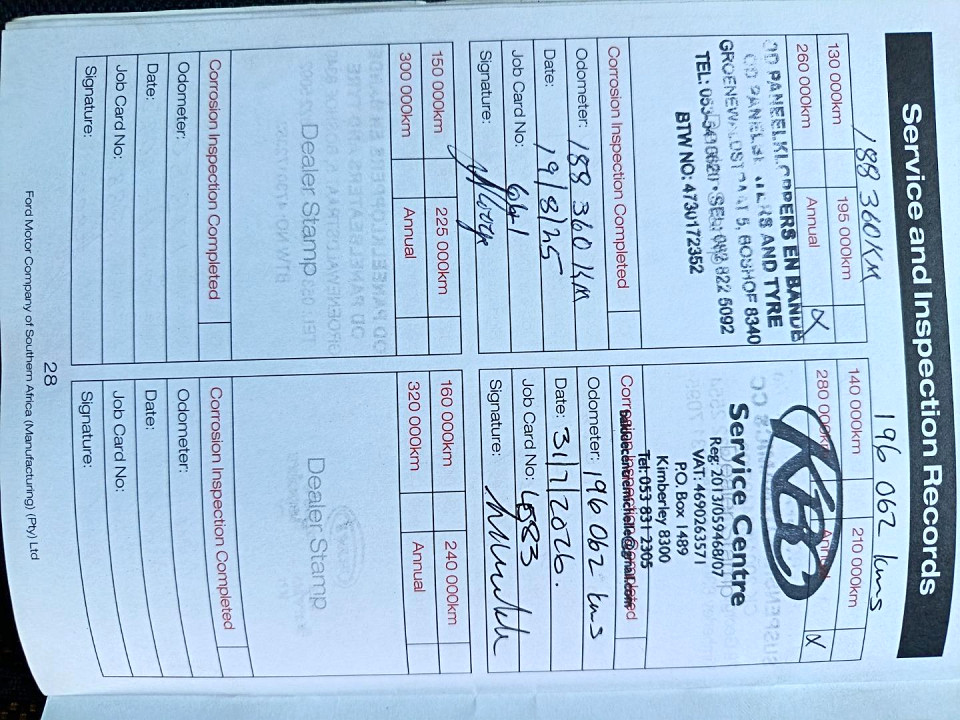 Service and Inspection Records
188 360KM
130 000km
195 000km
260 000km
Annual
X
OD PANEELKLOPPERS EN BANDE
OD PANELBEATERS AND TYRE
BOSHOF 8340
082 822 5092
BTW NO: 4730172352
Corrosion Inspection Completed
Odometer: 188 360 KM
Date: 19/8/25
Job Card No:
Signature:
196 062 kms
140 000km
210 000km
280 000km
Annual
X
KEO
Service Centre
Reg: 2013/059468/07
VAT: 4690263571
P.O. Box 1489
Kimberley 8300
Tel: 053 831 2305
Corrosion Inspection Completed
Odometer: 196 062 kms
Date: 31/7/2026.
Job Card No: 4583
Signature:
150 000km
225 000km
300 000km
Annual
Dealer Stamp
Corrosion Inspection Completed
Odometer:
Date:
Job Card No:
Signature:
160 000km
240 000km
320 000km
Annual
Dealer Stamp
Corrosion Inspection Completed
Odometer:
Date:
Job Card No:
Signature:
28
Ford Motor Company of Southern Africa (Manufacturing) (Pty) Ltd